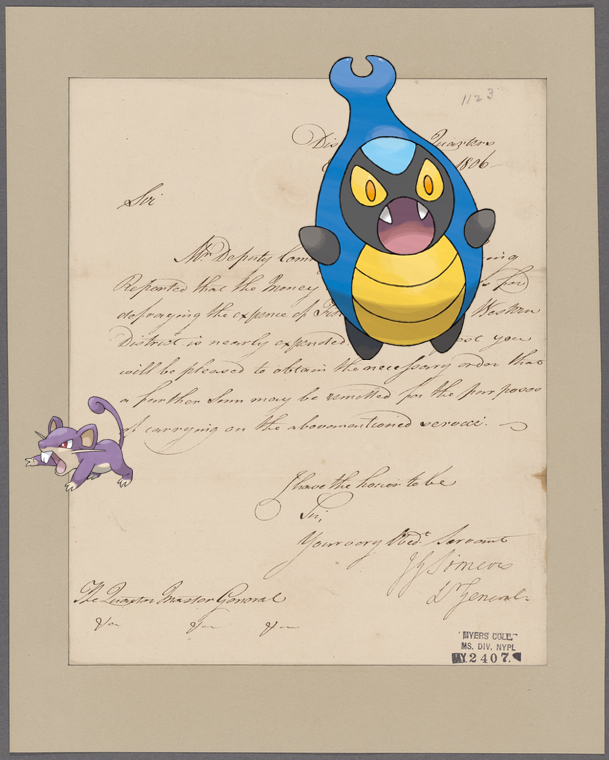 1123
Dis Quarters
1806
Sir
Mr Deputy Com ing
Reported that the Money for
defraying the expence of Western
District is nearly expended you
will be pleased to obtain the necessary order that
a further Sum may be remitted for the purposes
of carrying on the abovementioned service.
I have the honor to be
Sir,
Your very Obed. Servant
Lt General
The Quarter Master General
&c &c &c
"MYERS COLL."
MS. DIV. NYPL
2407.